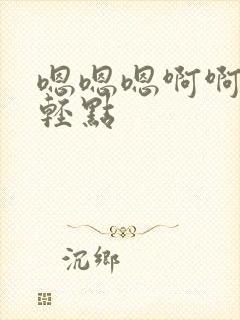 嗯嗯嗯啊啊
輕點
沉鄉